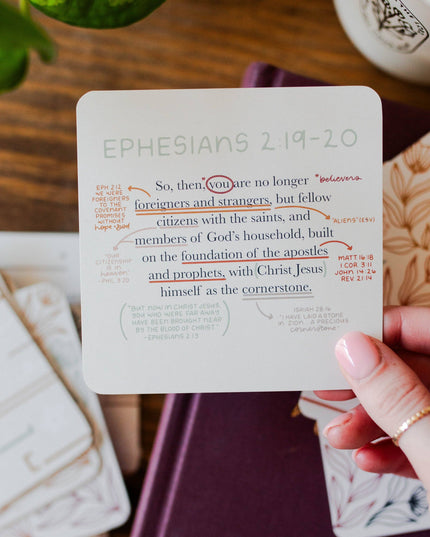 EPHESIANS 2:19-20
So, then, "you are no longer
*believers
foreigners and strangers, but fellow
citizens with the saints, and
members of God's household, built
on the foundation of the apostles
and prophets, with Christ Jesus
himself as the cornerstone.
EPH 2:12
WE WERE
FOREIGNERS
TO THE
COVENANT
PROMISES
WITHOUT
hope + God
"ALIENS" (ESV)
"OUR
CITIZENSHIP
IS IN
heaven"
- PHIL 3:20
MATT 16:18
1 COR 3:11
JOHN 14:26
REV 21:14
"BUT NOW IN CHRIST JESUS,
YOU WHO WERE FAR AWAY
HAVE BEEN BROUGHT NEAR
BY THE BLOOD OF CHRIST."
-EPHESIANS 2:13
ISAIAH 28:16
"I HAVE LAID A STONE
IN ZION... A PRECIOUS
cornerstone"